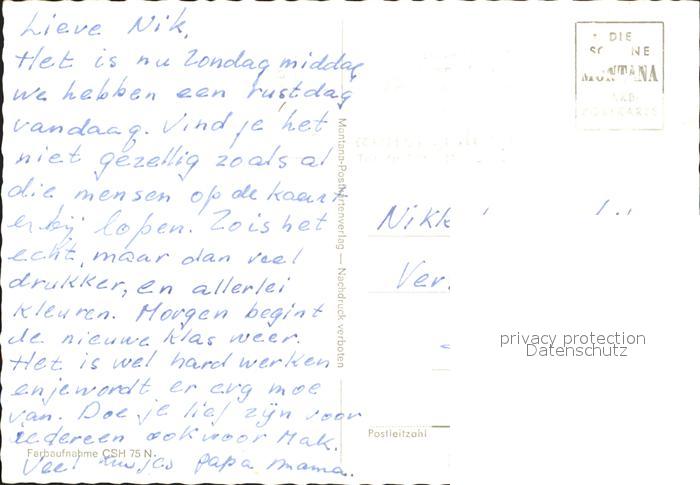 Lieve Nik,
Het is nu zondag middag
we hebben een rustdag
vandaag. Vind je het
niet gezellig zoals al
die mensen op de kaart
erbij lopen. Zo is het
echt, maar dan veel
drukker, en allerlei
kleuren. Morgen begint
de nieuwe klas weer.
Het is wel hard werken
en je wordt er erg moe
van. Doe je lief zijn voor
iedereen ook voor Mak.
Veel papa mama.
Farbaufnahme CSH 75 N
Montana-Postkartenverlag — Nachdruck verboten
DIE
NE
MONTANA
Nikk
Ver.
privacy protection
Datenschutz
Postleitzahl